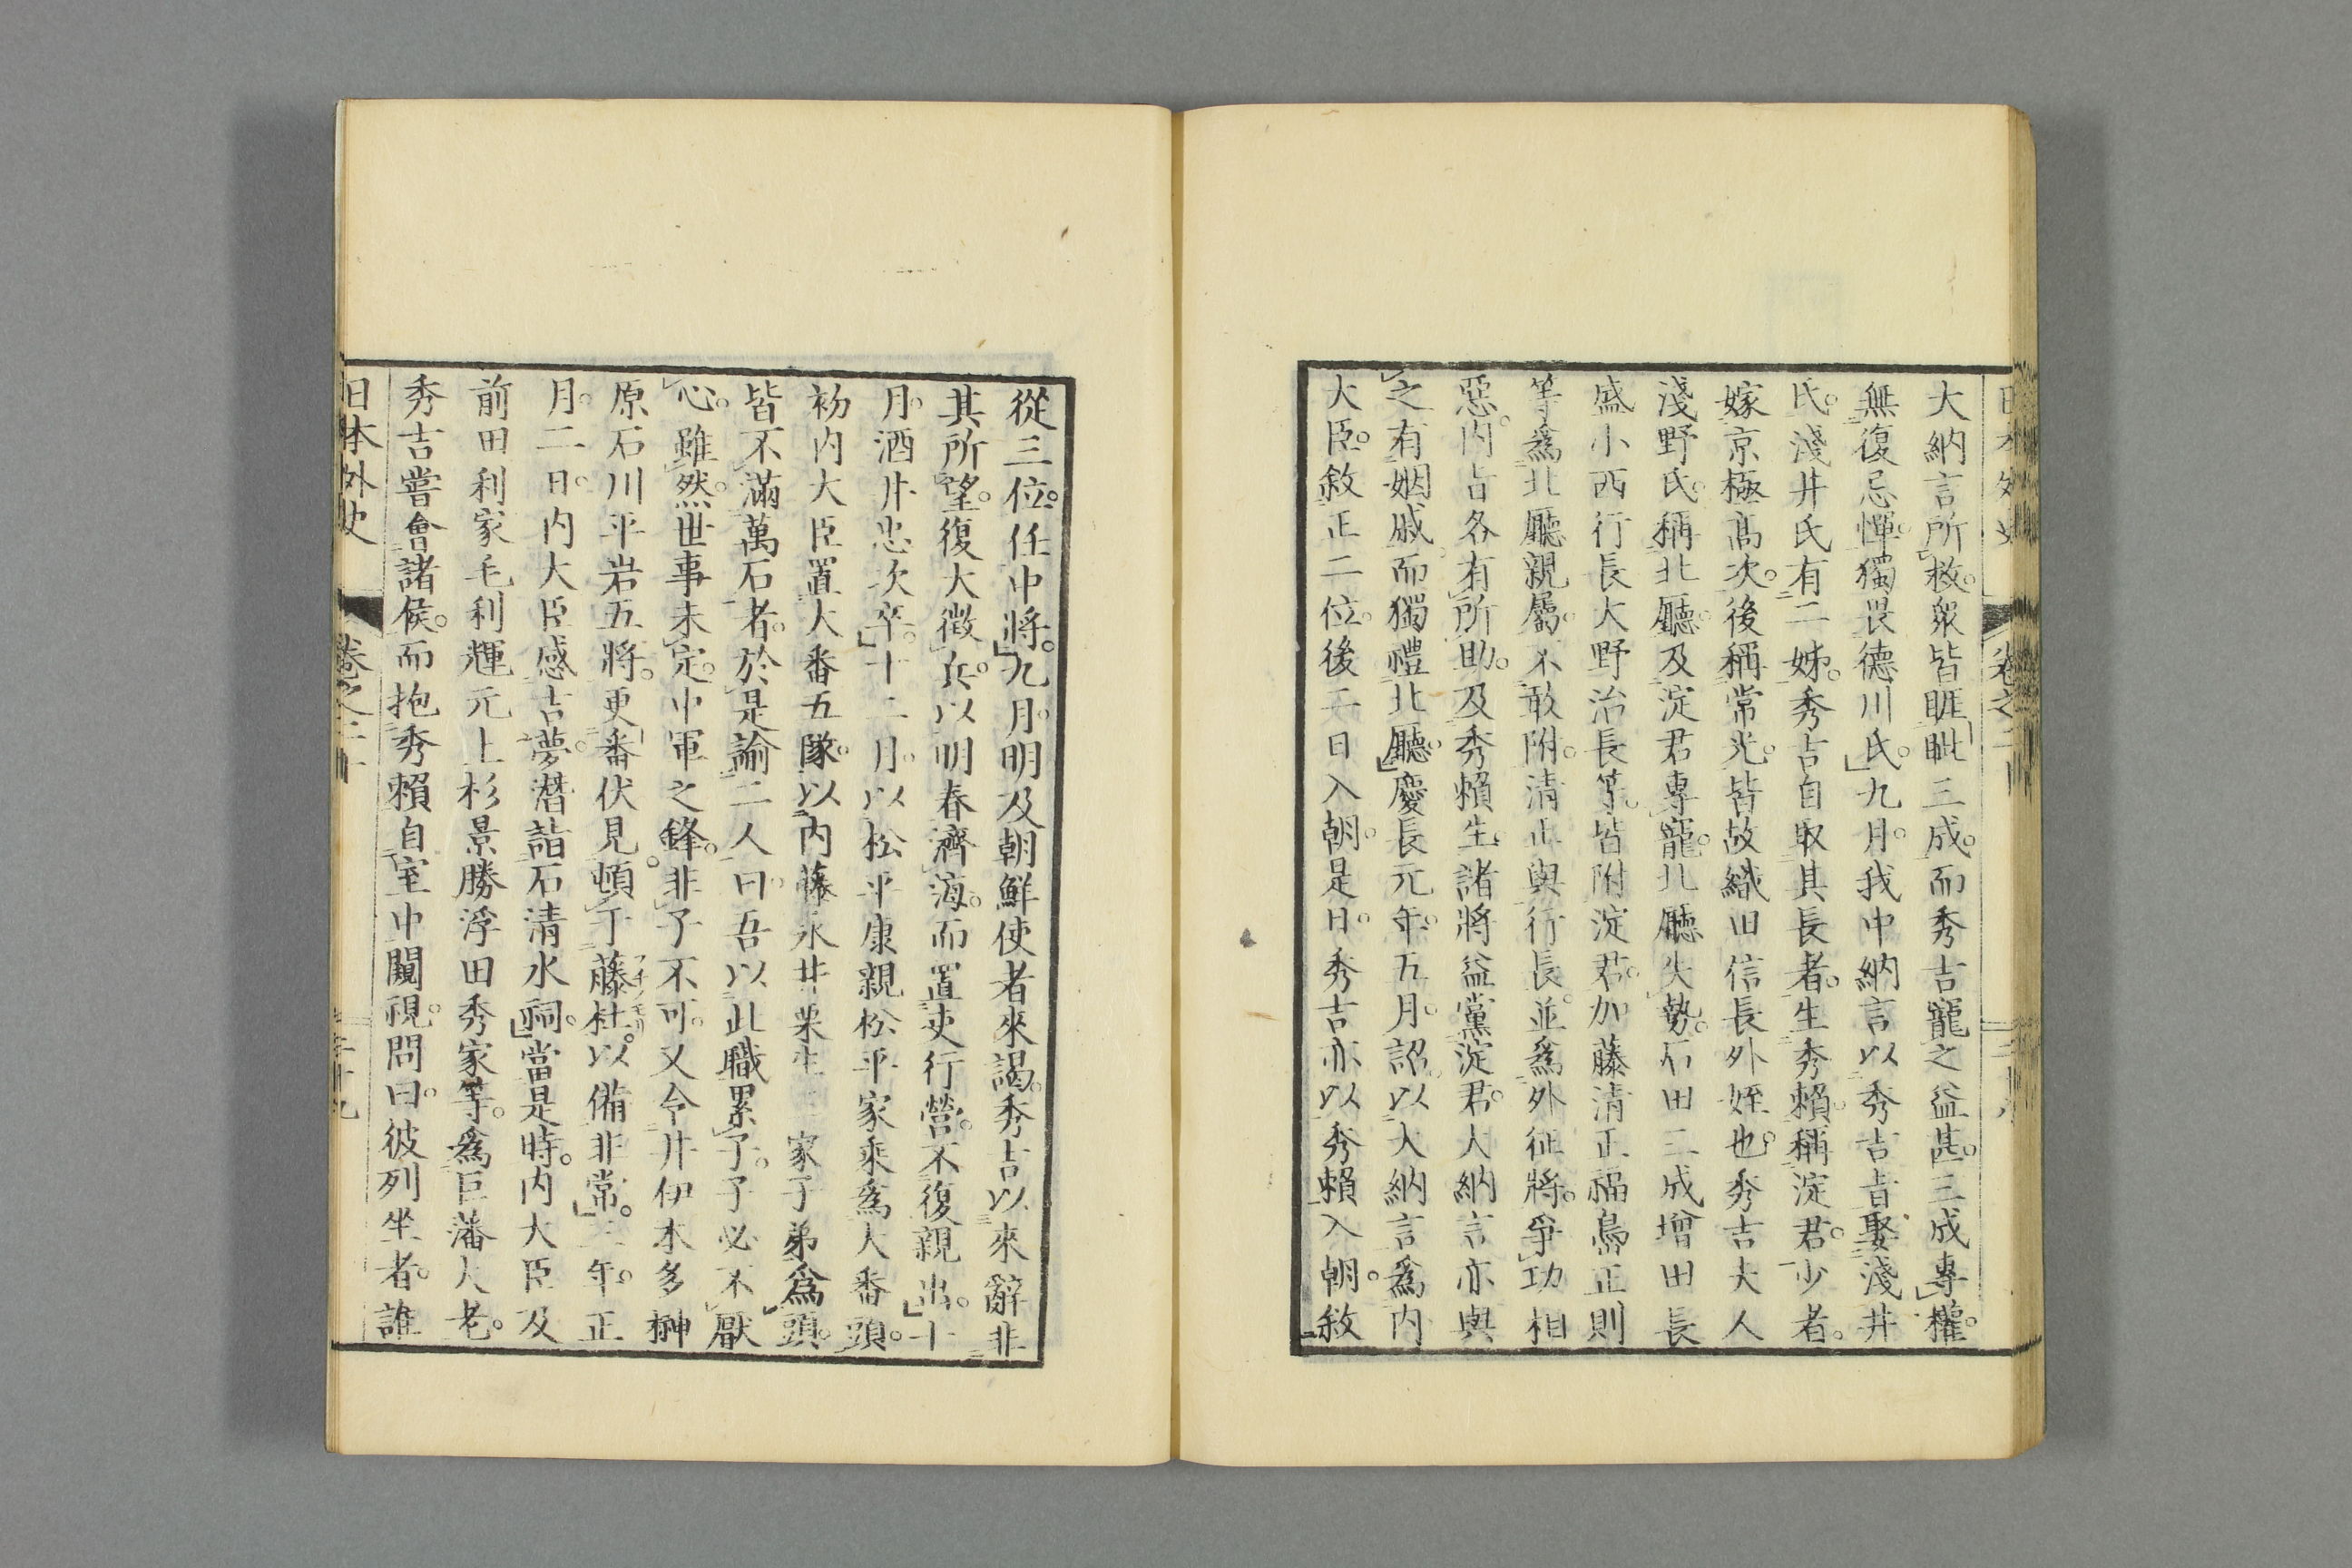 大納言所救。衆皆睚眦三成。而秀吉寵之益甚。三成專權。
無復忌憚。獨畏德川氏。九月。我中納言以秀吉旨娶淺井
氏。淺井氏有二姊。秀吉自取其長者。生秀賴。稱淀君。少者。
嫁京極高次。後稱常光。皆故織田信長外姪也。秀吉夫人
淺野氏。稱北廳。及淀君專寵。北廳失勢。石田三成增田長
盛小西行長大野治長等。皆附淀君。加藤清正福島正則
等爲北廳親屬。不敢附。清正與行長。並爲外征將。爭功相
惡。內各有所助。及秀賴生。諸將益黨淀君。大納言亦與
之有姻戚。而獨禮北廳。慶長元年。五月。詔以大納言爲内
大臣。敘正二位。後二日入朝。是日。秀吉亦以秀賴入朝。敘
從三位。任中將。九月。明及朝鮮使者來謁。秀吉以來辭非
其所望。復大徵兵。以明春濟海。而置吏行營。不復親出。十
月。酒井忠次卒。十二月。以松平康親松平家乘爲大番頭。
初内大臣置大番五隊。以内藤永井粟生三家子弟爲頭。
皆不滿萬石者。於是諭二人曰。吾以此職累子。子必不厭
心。雖然。世事未定。中軍之鋒。非子不可。又令井伊本多榊
原石川平岩五將。更番伏見。頓于藤杜。以備非常。二年。正
月。二日。内大臣感吉夢。潛詣石清水祠。當是時。内大臣及
前田利家毛利輝元上杉景勝浮田秀家等。爲巨藩大老。
秀吉嘗會諸侯。而抱秀賴。自室中闚視。問曰。彼列坐者。誰
日本外史 卷之二十